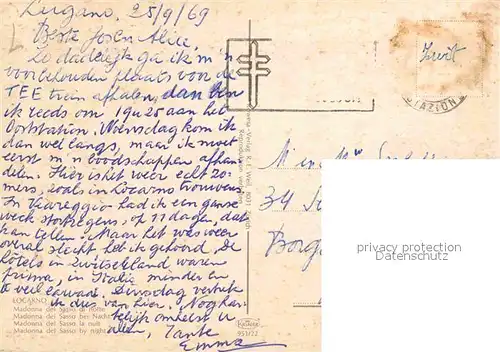 Lugano, 25/9/69
Beste Jos en Alice,
Zo dadelijk ga ik m'n
voorbehouden plaats van de
TEE trein afhalen, dan ben
ik reeds om 19u25 aan het
Oortstation. Woensdag kom ik
dan wel langs, maar ik moet
eerst m'n boodschappen afhan
delen. Hier is het weer echt zo-
mers, zoals in Locarno trouwens.
In Viareggio had ik een ganse
week stortregens, op 11 dagen, dat
kan tellen. Maar het was weer
overal slecht heb ik gehoord. De
hôtels in Zwitserland waren
prima, in Italië minder en
te veel lawaai. Dinsdag vertrek
ik dus van hier. Nog har-
telijk omhelsd
allen, Tante
Emma
LOCARNO
Madonna del Sasso di notte
Madonna del Sasso bei Nacht
Madonna del Sasso la nuit
Madonna del Sasso by night
951/22
Zwit
STAZION
34
privacy protection
www.ansichtskartenversand.com